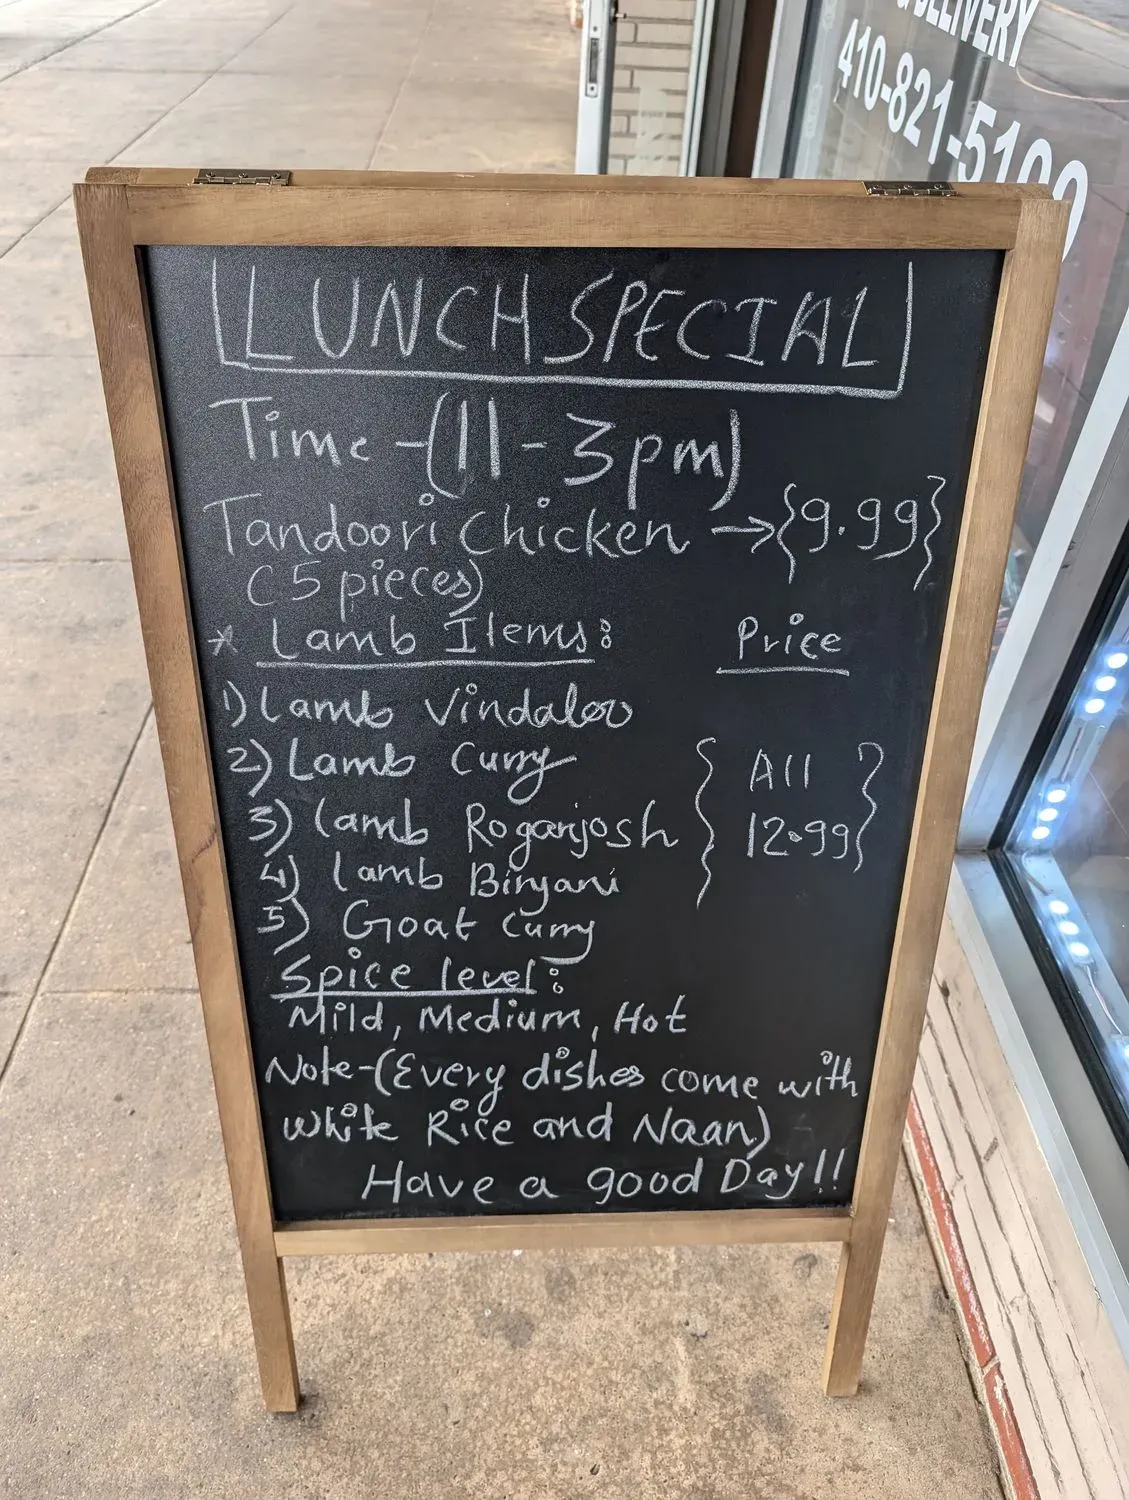 DELIVERY
410-821-5
LUNCH SPECIAL
Time -(11-3pm)
Tandoori Chicken → {9.99}
(5 pieces)
* Lamb Items: Price
1) Lamb Vindaloo
2) Lamb Curry
3) Lamb Roganjosh { All 12.99 }
4) Lamb Biryani
5) Goat Curry
Spice level:
Mild, Medium, Hot
Note-(Every dishes come with
White Rice and Naan)
Have a good Day!!